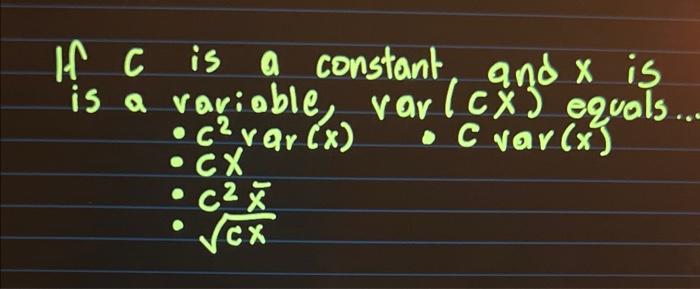 If c is a constant, and x is
is a variable, var(cx) equals...
• c² var(x) • c var(x)
• cx
• c² x̄
• √cx